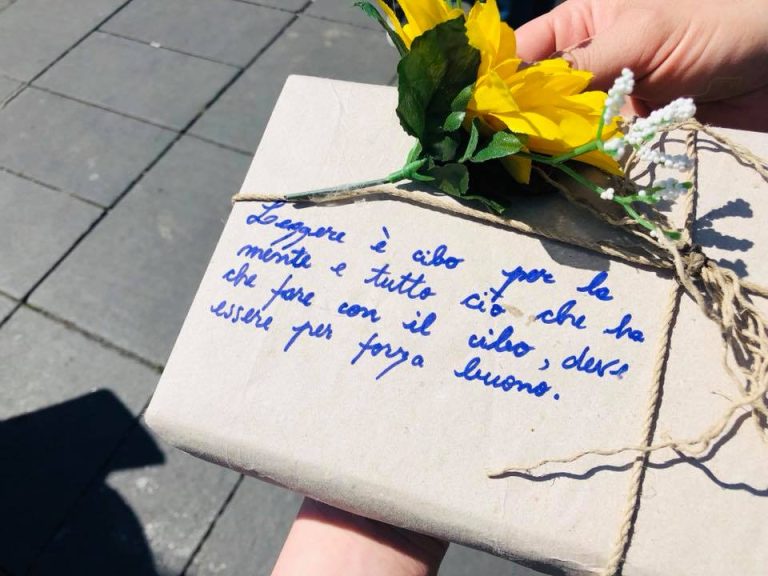 Leggere è cibo per la
mente e tutto ciò che ha
che fare con il cibo, deve
essere per forza buono.